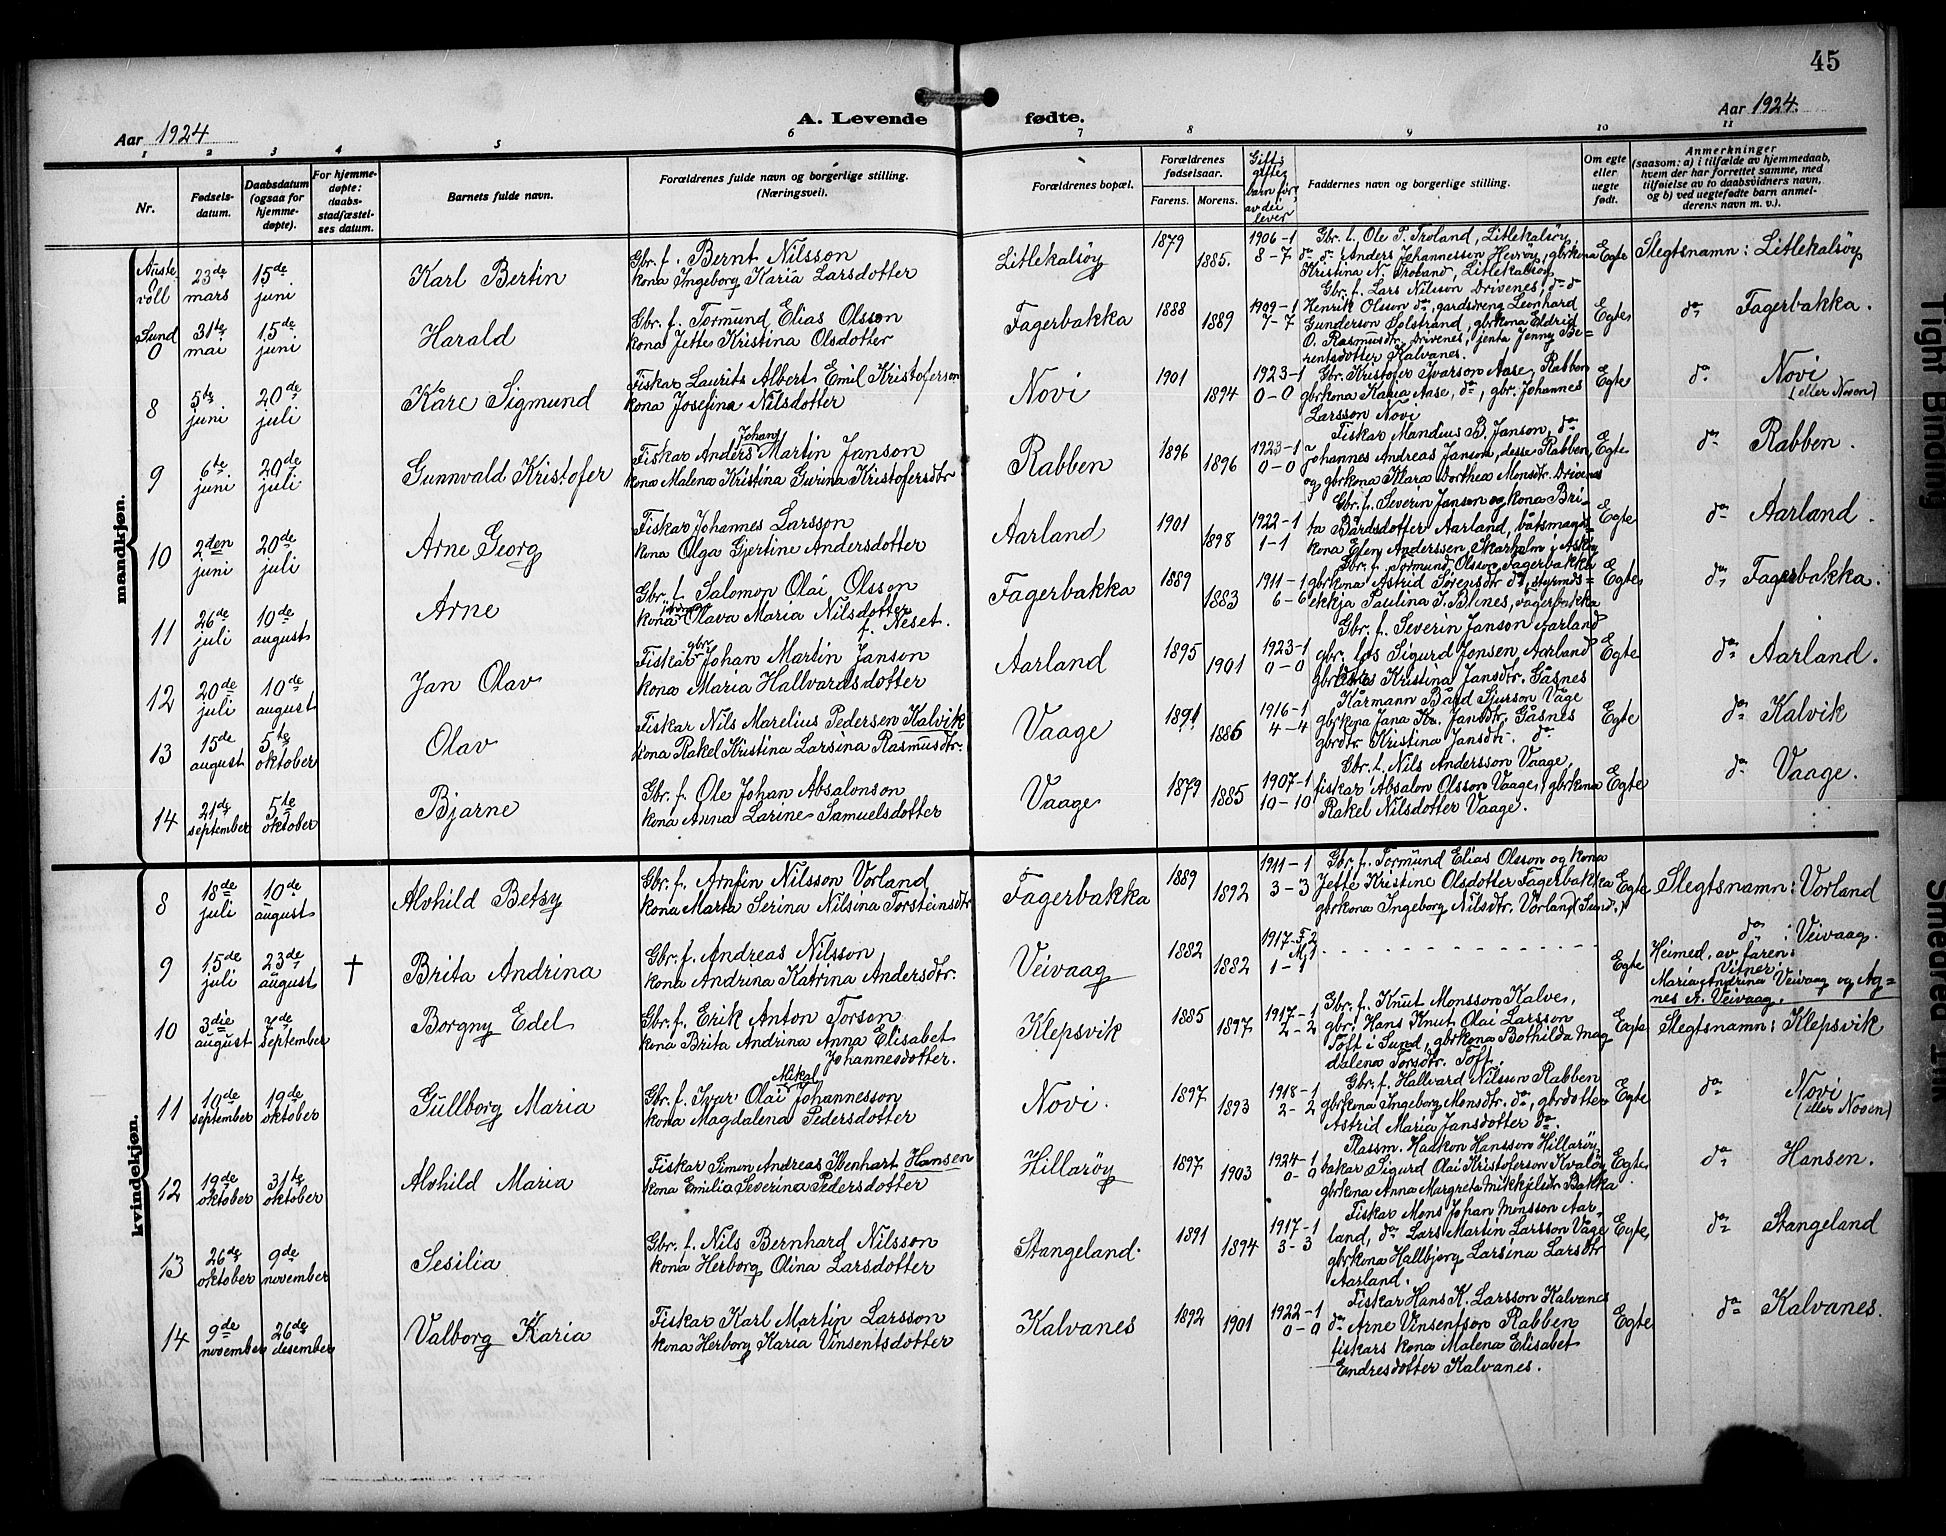 45
Aar 1924
A. Levende fødte.
Aar 1924.
1 2 3 4 5 6 7 8 9 10 11
Nr.
Fødsels-
datum.
Daabsdatum
(ogsaa for
hjemme-
døpte).
For hjemme-
døpte:
daabs-
stadfæstel-
ses datum.
Barnets fulde navn.
Forældrenes fulde navn og borgerlige stilling.
(Næringsvei).
Forældrenes bopæl.
Forældrenes
fødselsaar.
Farens. Morens.
Faddernes navn og borgerlige stilling.
Om egte
eller
uegte
født.
Anmerkninger
(saasom: a) i tilfælde av hjemmedaab,
hvem der har forrettet samme, med
tilføielse av to daabsvidners navn,
og b) ved uegtefødte barn anmel-
derens navn m. v.).
mandkjøn.
Auste-
voll 23de mars 15de juni Karl Bertin
Gbr. f. Bernt Nilsson
kona Ingeborg Karia Larsdotter
Litlekalsøy 1879 1885. 1906-1 8-7
Gbr. f. Ole P. Troland, Litlekalsøy,
do do Anders Johannessen Hevrøy, gbrkona
Kristina N. Troland, Litlekalsøy
Egte Slegtsnamn: Litlekalsøy
Sund
0 31te mai 15de juni Harald
Gbr. f. Tormund Elias Olsson
kona Jette Kristina Olsdotter
Fagerbakka 1888 1889 1909-1 7-7
Gbr. f. Lars Nilsson Drivenes, do do
Henrik Olsson do, gardsdreng Leonhard
Gunderson Solstrand, gbrkona Eldrid
O. Rasmusdtr. Drivenes, jenta Jenny Be-
rentsdotter Kalvanes.
Egte do Fagerbakka.
8 5te juni 20de juli Kåre Sigmund
Fiskar Laurits Albert Emil Kristoferson
kona Josefina Nilsdotter
Novi 1901 1894 1923-1 0-0
Gbr. Kristofer Ivarson Aase, Rabben
gbrkona Karia Aase, do, gbr. Johannes
Larsson Novi
Egte do Novi
(eller Noven)
9 6te juni 20de juli Gunnvald Kristofer
Johan
Fiskar Anders Martin Janson
kona Malena Kristina Gurina Kristofersdtr
Rabben 1896 1896 1923-1 0-0
Fiskar Mandius B. Janson, do
Johannes Andreas Janson, desse Rabben,
og gbrkona Klara Dorthea Monsdtr. Drivenes
Egte do Rabben.
10 2den juni 20de juli Arne Georg
Fiskar Johannes Larsson
kona Olga Gjertine Andersdotter
Aarland 1901 1898 1922-1 1-1
Gbr. f. Severin Janson og kona Bri-
ta Bårdsdotter Aarland, båtsmands-
kona Elen Anderssen, Skarholm i Askøy
Egte do Aarland.
11 26de juli 10de august Arne
Gbr. f. Salomon Olai Olsson
kona Olava Maria Nilsdotter
f. Neset.
Fagerbakka 1889 1883 1911-1 6-6
Gbr. f. Tormund Olsson, Fagerbakka
gbrkona Astrid Sørensdtr do, styrmds-
ekkja Paulina J. Blenes, Fagerbakka
Egte do Fagerbakka.
12 20de juli 10de august Jan Olav
gbr.
Fiskar Johan Martin Janson
kona Maria Hallvardsdotter
Aarland 1895 1901 1923-1 0-0
Gbr. f. Severin Janson Aarland
gbr. los Sigurd Jonsen Aarland
gbrkona Kristina Jansdtr. Gåsnes
Egte do Aarland.
13 15de august 5te oktober Olav
Fiskar Nils Marelius Pedersen Kalvik
kona Rakel Kristina Larsina Rasmusdtr.
Vaage 1891 1886 1916-1 4-4
Kårmann Bård Sjurson Våge
gbrkona Jana Kr. Jansdtr. Gåsnes
gbrdtr Kristina Jansdtr. do
Egte do Kalvik
14 21de september 5te oktober Bjarne
Gbr. f. Ole Johan Absalonson
kona Anna Larine Samuelsdotter
Vaage 1879 1885 1907-1 10-10
Gbr. f. Nils Andersson Vaage,
fiskar Absalon Olsson Vaage, gbrkona
Rakel Nilsdotter Vaage.
Egte do Vaage.
kvindekjøn.
8 18de juli 10de august Alvhild Betsy
Gbr. f. Arnfin Nilsson Vorland
kona Marta Serina Nilsina Torsteinsdtr
Fagerbakka 1889 1892 1911-1 3-3
Gbr. f. Tormund Elias Olsson og kona
Jette Kristine Olsdotter Fagerbakka
gbrkona Ingeborg Nilsdtr. Vorland (Sund.)
Egte Slegtsnamn: Vorland
9 15de juli 23de august † Brita Andrina
Gbr. f. Andreas Nilsson
kona Andrina Katrina Andersdtr.
Veivaag 1882 1882 1917-F2 M1 1-1
Egte do : Veivaag.
Heimed. av faren:
Vitner,
Maria Andrina Veivaag og Ag-
nes A. Veivaag.
10 3die august 7de september Borgny Edel
Gbr. f. Erik Anton Torson
kona Brita Andrina Anna Elisabet
Johannesdotter.
Klepsvik 1885 1897 1917-1 2-2
Gbr. f. Knut Monsson Kalve,
gbr. Hans Knut Olai Larsson
Toft i Sund, gbrkona Bothilda Mag
dalena Torsdtr. Toft.
Egte Slegtsnamn: Klepsvik
11 10de september 19de oktober Gullborg Maria
Mikal
Gbr. f. Ivar Olai Johannesson
kona Magdalena Pedersdotter
Novi. 1897 1893 1918-1 2-2
Gbr. f. Hallvard Nilsson Rabben
gbrkona Ingeborg Monsdtr. do, gbrdotter
Astrid Maria Jansdotter do.
Egte do Novi
(eller Noven)
12 19de oktober 31te oktober Alvhild Maria
Fiskar Simon Andreas Ibenhart Hansen
kona Emilia Severina Pedersdotter
Hillarøy 1897 1903 1924-1 0-0
Plassm. Haakon Hansson Hillarøy,
bakar Sigurd Olai Kristoferson Kvaløy
gbrkona Anna Margreta Mikkjelsdtr Bakka
Egte do Hansen.
13 26de oktober 9de november Sesilia
Gbr. f. Nils Bernhard Nilsson
kona Herborg Olina Larsdotter
Stangeland. 1891 1894 1917-1 3-3
Fiskar Mons Johan Monsson Aar-
land, do Lars Martin Larsson Våge
gbrkona Hallbjørg Larsina Larsdtr
Aarland.
Egte do Stangeland
14 9de november 26de desember Valborg Karia
Fiskar Karl Martin Larsson
kona Herborg Karia Vinsentsdotter
Kalvanes 1892 1901 1922-1 0-0
Fiskar Hans K. Larsson Kalvanes
do Arne Vinsentson Rabben
fiskars kona Malena Elisabet
Endresdotter Kalvanes.
Egte do Kalvanes.
Tight Binding
Smeared Ink